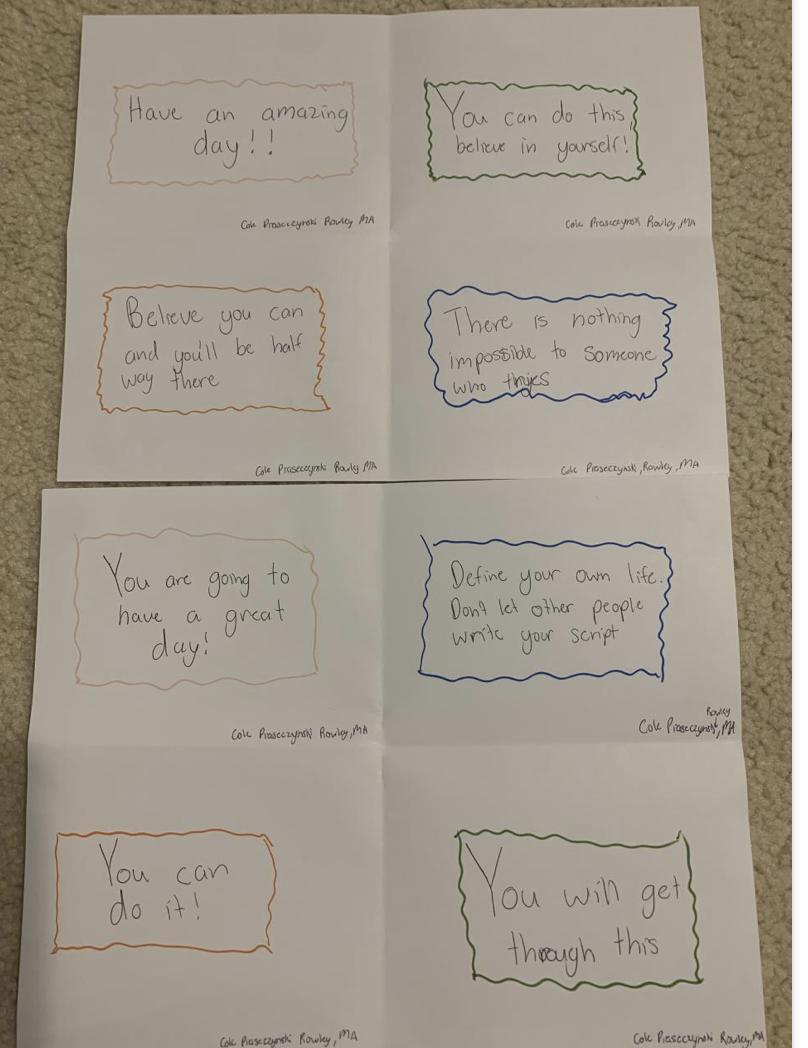 Have an amazing
day!!
Cole Piaseczynski Rowley MA
You can do this,
believe in yourself!
Cole Piaseczynski Rowley, MA
Believe you can
and you'll be half
way there
Cole Piaseczynski Rowley MA
There is nothing
impossible to someone
who
Cole Piaseczynski, Rowley, MA
You are going to
have a great
day!
Cole Piaseczynski Rowley, MA
Define your own life.
Don't let other people
write your script
Rowley
Cole Piaseczynski, MA
You can
do it!
Cole Piaseczynski Rowley, MA
You will get
through this
Cole Piaseczynski Rowley, MA